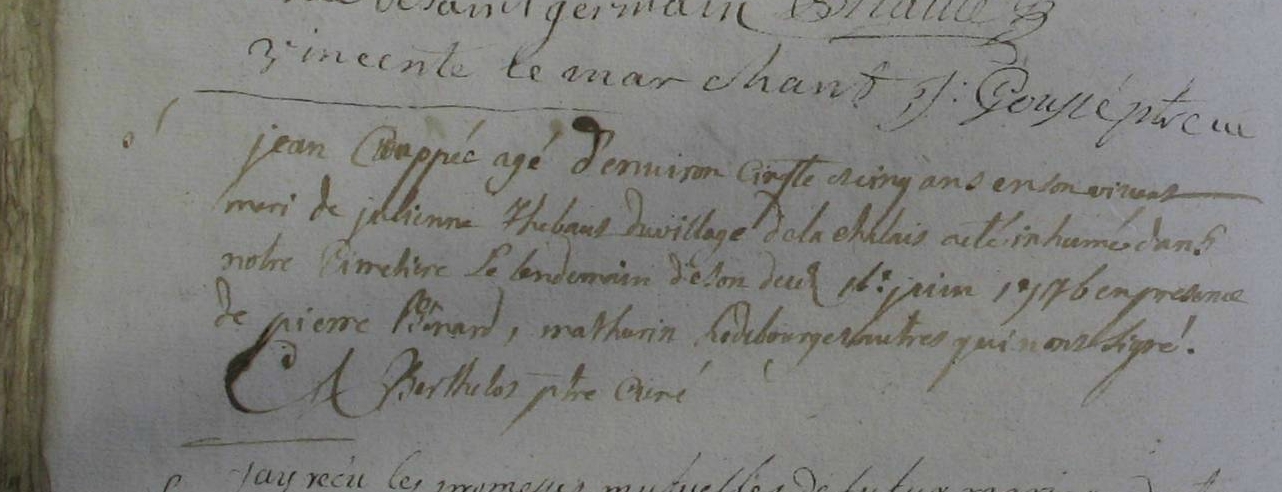 de saint germain
Vincente le marchant J: Goussé ptre cu
s
jean Crappée agé d'environ cinqte cinq ans en son vivant
mari de julienne Thebaut du village de la chalais a eté inhumé dans
notre Cimetiere Le lendemain de son decez juin 1776 en presence
de pierre Bénard, mathurin et autres qui n'ont signé.
Berthelot ptre Curé
Jay reçu les promesses mutuelles de futur